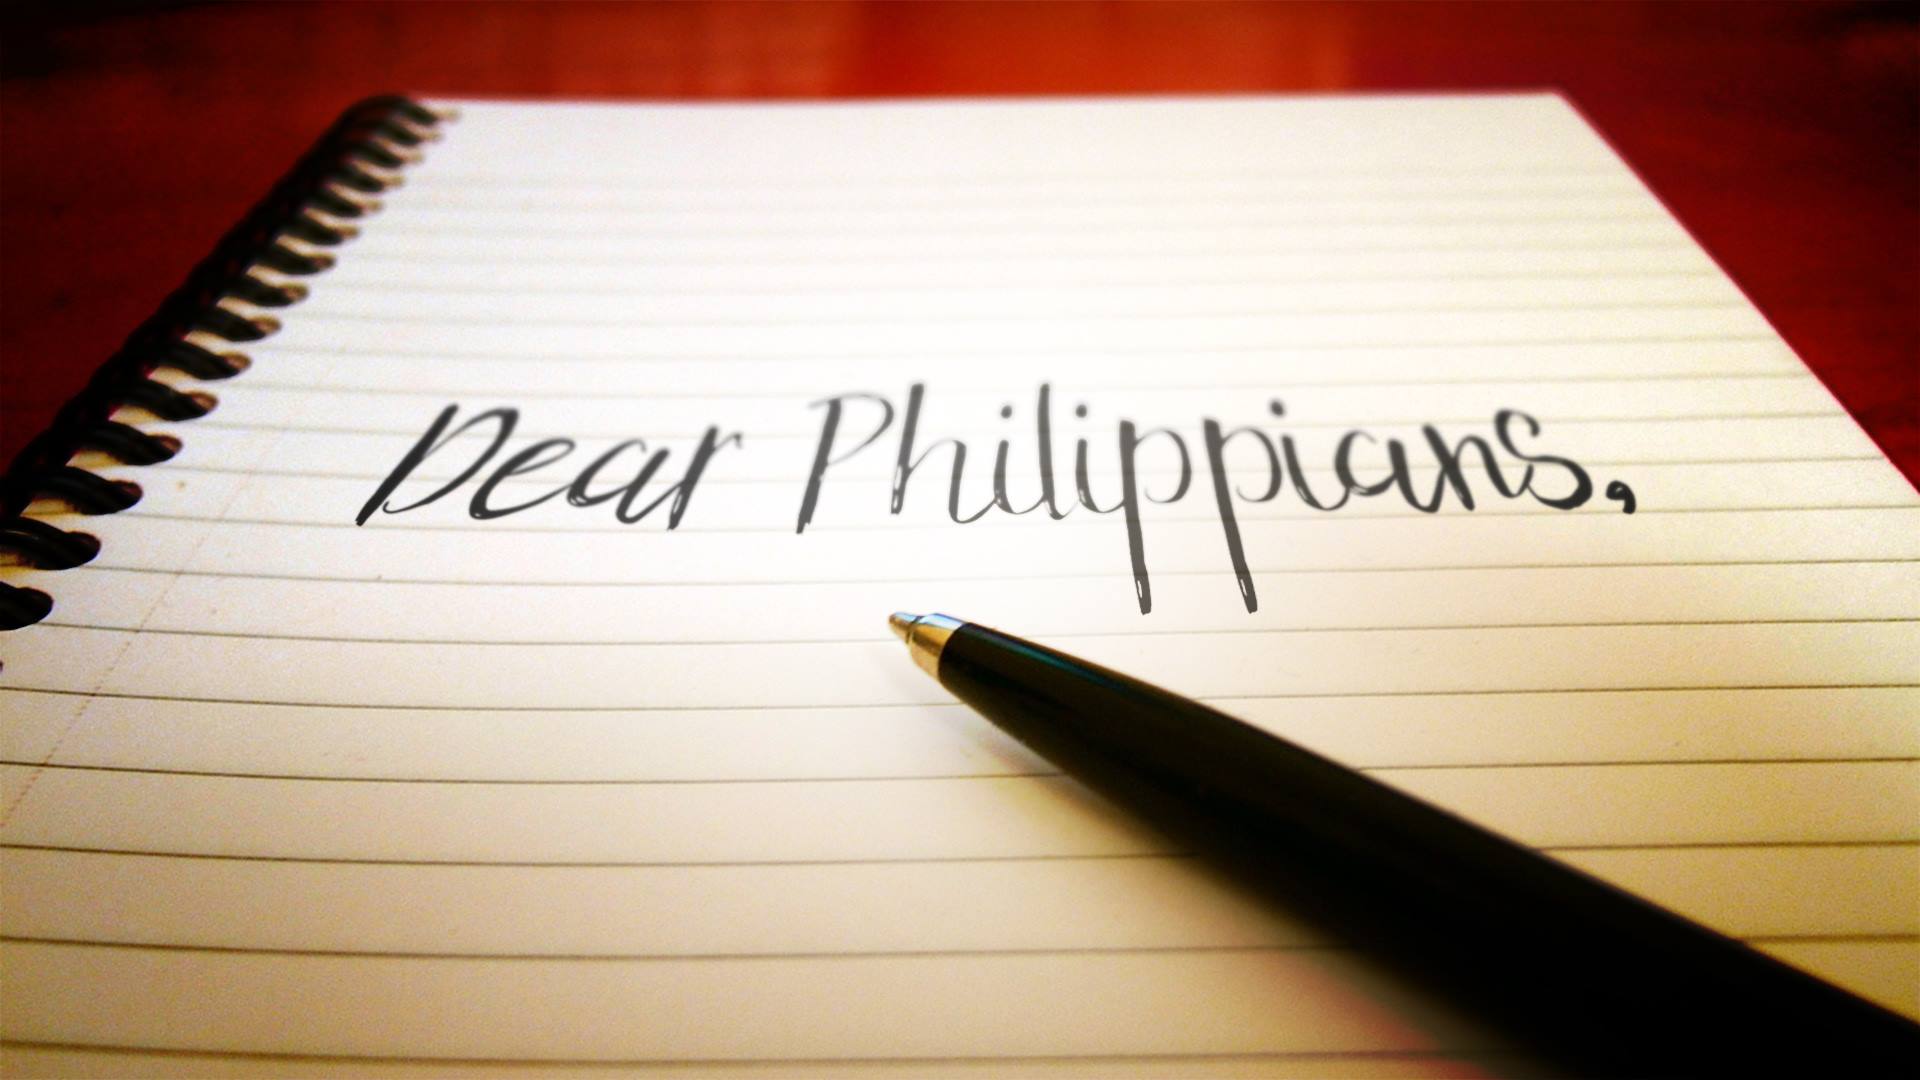 Dear Philippians,